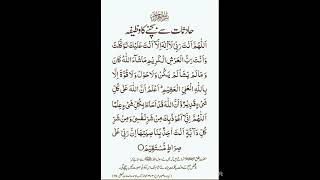 حادثات سے بچنے کا وظیفہ
اَللّٰهُمَّ اَنْتَ رَبِّیْ لَاۤ اِلٰهَ اِلَّاۤ اَنْتَ عَلَیْكَ تَوَكَّلْتُ
وَاَنْتَ رَبُّ الْعَرْشِ الْكَرِیْمِ مَاشَآءَ اللّٰهُ كَانَ
وَمَا لَمْ یَشَأْ لَمْ یَكُنْ وَلَا حَوْلَ وَلَا قُوَّةَ اِلَّا
بِاللّٰهِ الْعَلِیِّ الْعَظِیْمِ اَعْلَمُ اَنَّ اللّٰهَ عَلٰی كُلِّ
شَیْءٍ قَدِیْرٌ وَّ اَنَّ اللّٰهَ قَدْ اَحَاطَ بِكُلِّ شَیْءٍ عِلْمًا
اَللّٰهُمَّ اِنِّیْ اَعُوْذُبِكَ مِنْ شَرِّ نَفْسِیْ وَمِنْ شَرِّ
كُلِّ دَآبَّةٍ اَنْتَ اٰخِذٌۢ بِنَاصِیَتِهَا اِنَّ رَبِّیْ عَلٰی
صِرَاطٍ مُّسْتَقِیْمٍ